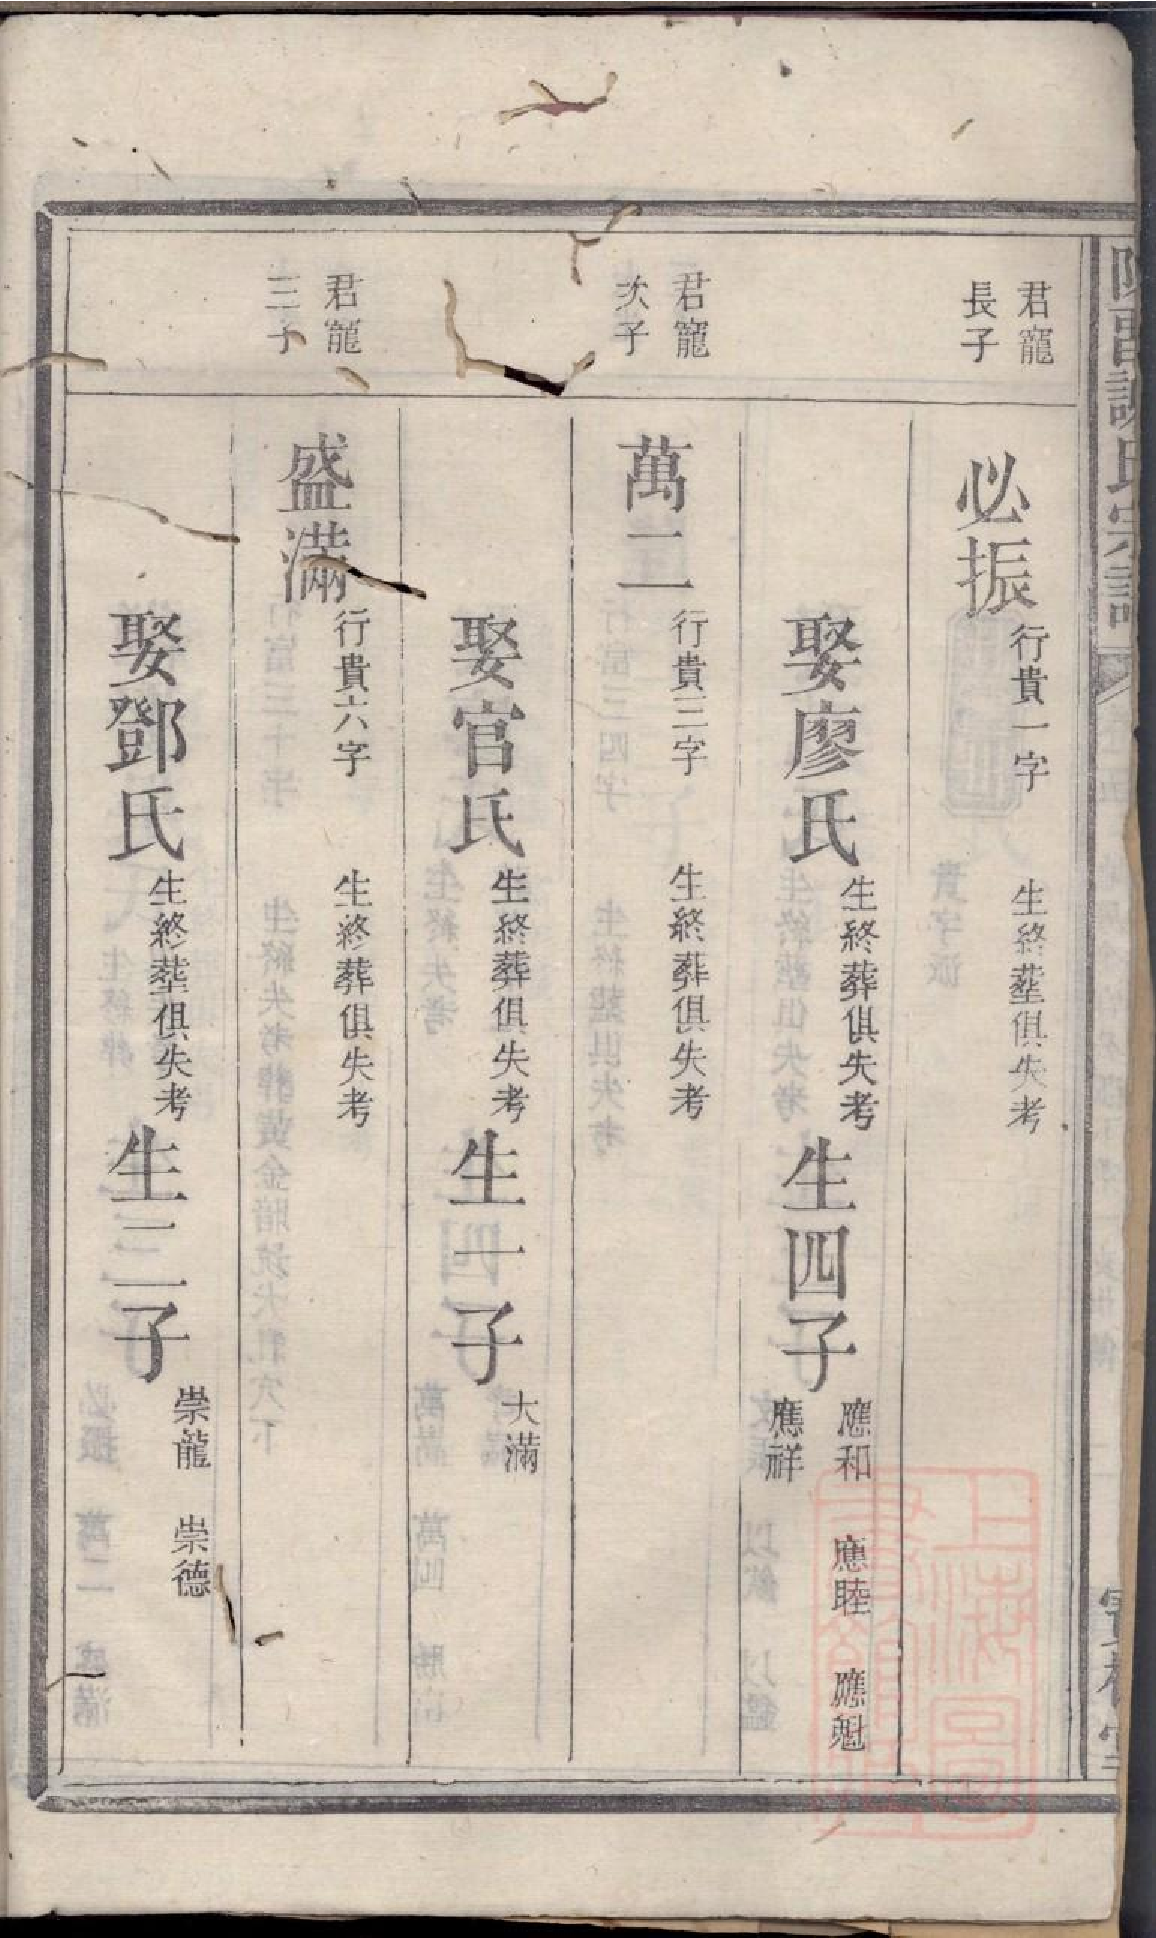 君寵
長子
必振
行貴一字
生終塟俱失考
娶廖氏
生終葬俱失考
生四子
應和 應睦 應魁
應祥
君寵
次子
萬二
行貴三字
生終葬俱失考
娶官氏
生終葬俱失考
生一子
大滿
君寵
三子
盛滿
行貴六字
生終葬俱失考
娶鄧氏
生終塟俱失考
生二子
崇龍 崇德
上海圖書館藏